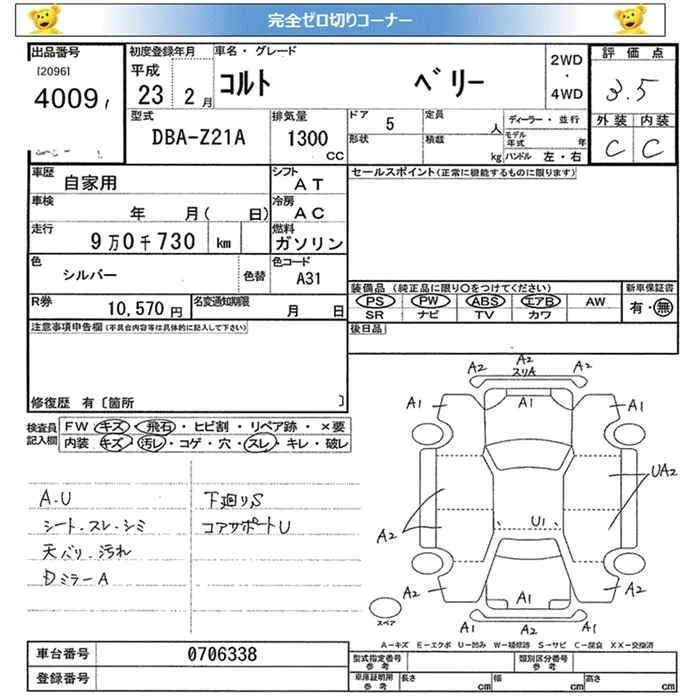 完全ゼロ切りコーナー
出品番号
[2096]
4009
初度登録年月
平成
23 2月
車名・グレード
コルト ベリー
2WD
・
4WD
評価点
3.5
外装 内装
C C
型式
DBA-Z21A
排気量
1300
CC
ドア 5
形状
定員 人
積載 kg
ディーラー・並行
モデル年式 年
ハンドル 左・右
車歴
自家用
シフト
AT
車検
年 月( 日)
冷房
AC
走行
9万0千730 km
燃料
ガソリン
色
シルバー
色替
色コード
A31
R券
10,570 円
名変通知期限
月 日
セールスポイント(正常に機能するものに限ります)
装備品 (純正品に限り○をつけてください)
新車保証書
PS PW ABS エアB AW
有・無
SR ナビ TV カワ
後日品
注意事項申告欄(不具合内容等は具体的に記入して下さい)
修復歴 有〔箇所 〕
検査員記入欄
FW キズ・飛石・ヒビ割・リペア跡・×要
内装 キズ・汚レ・コゲ・穴・スレ・キレ・破レ
A.U
シート.スレ.シミ
天バリ.汚れ
DミラーA
下廻りS
コアサポートU
A2
A2
スリA
A2
A1
A1
A1
A1
A2
UA2
U1
A2
A2
A1
A1
A1
スペア
A−キズ E−エクボ U−凹み W−補修跡 S−サビ C−腐食 XX−交換済
車台番号
0706338
登録番号
型式指定番号
参考
類別区分番号
参考
車庫証明用
参考
長さ cm
幅 cm
高さ cm